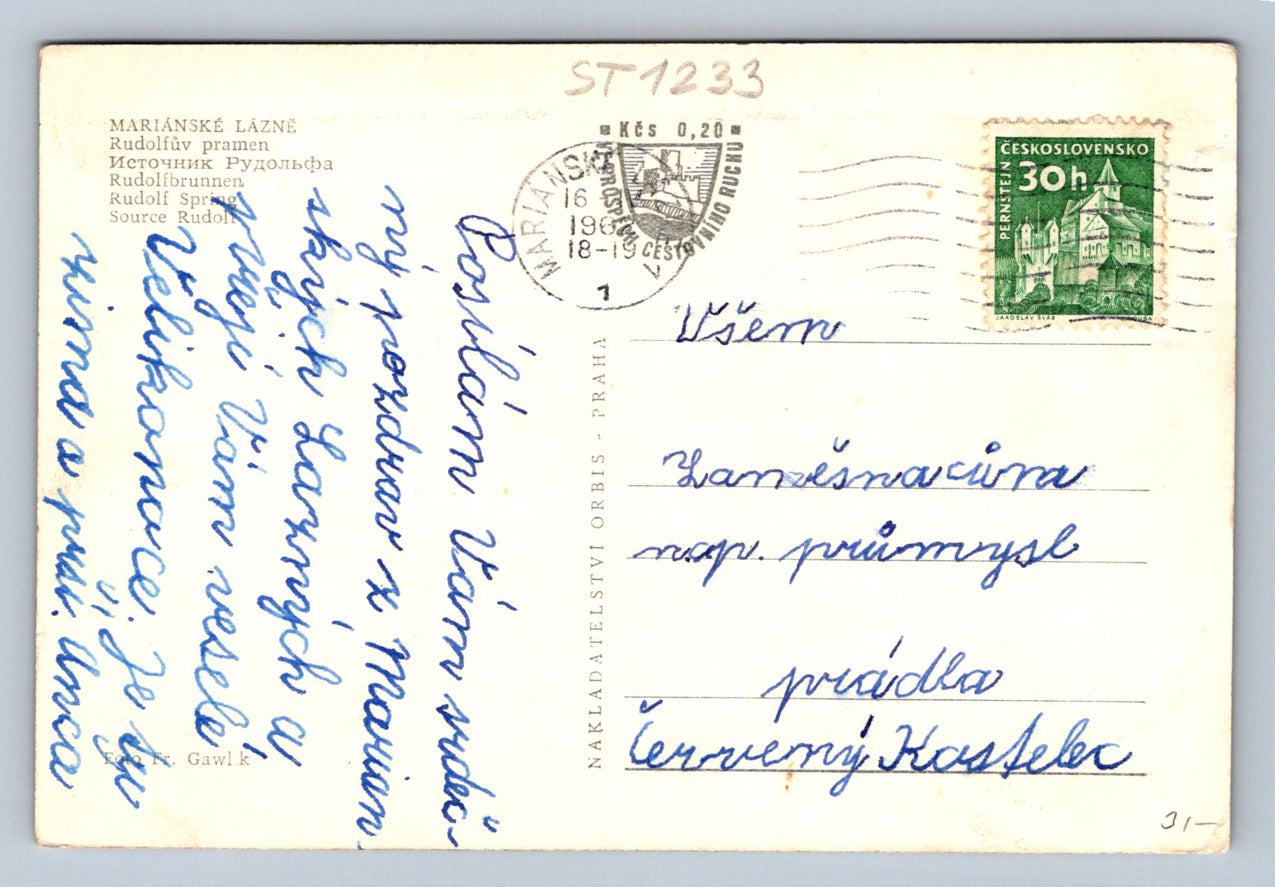 ST 1233
MARIÁNSKÉ LÁZNĚ
Rudolfův pramen
Источник Рудольфа
Rudolfbrunnen
Rudolf Spring
Source Rudolf
Kčs 0,20
CESTOVNÍHO RUCHU
MARIÁNSKÉ
16
196
18-19
1
ČESKOSLOVENSKO
30h
PERNŠTEJN
JAROSLAV ŠVÁB
Posílám Vám srdeč-
ný pozdrav z Marián
ských Lázných a
přeji Vám veselé
Velikonoce. Je tu
zima a prší.
NAKLADATELSTVÍ ORBIS - PRAHA
Všem
Zaměsnacům
nap. průmysl
prádla
Červený Kostelec
Foto Fr. Gawlik
31-